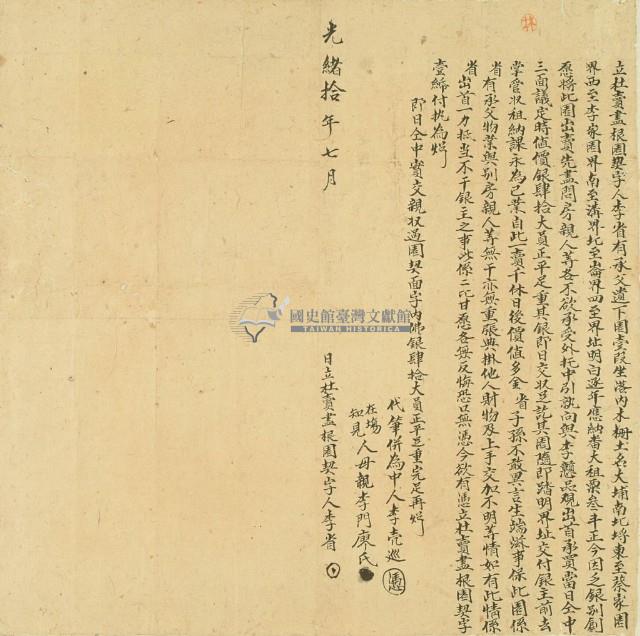 立杜賣盡根園契字人李省有承父遺下園壹段坐港內木柵土名大埔南圮埓東至蔡家園
界西至李家園界南至溝界北至崙界四至界址明白逐年應納畨大租粟叁斗正今因乏銀別創
愿將此園出賣先盡問房親人等各不欲承受外托中引就向與李戇品观出首承買當日仝中
三面議定時值價銀肆拾大員正平足重其銀即日交收足訖其園隨即踏明界址交付銀主前去
掌管收租納課永為己業自此一賣千休日後價值多金省子孫不敢異言生端滋事保此園係
省有承父物業與別房親人等無干亦無重張典掛他人財物及上手交加不明等情如有此情係
省出首一力抵当不干銀主之事此係二比甘愿各無反悔恐口無憑今欲有憑立杜賣盡根園契字
壹紙付执為炤
即日仝中實交親收過園契面字內佛銀肆拾大員正平足重完足再炤
代筆併為中人李壳巡
憑
在場知見人母親李門廖氏
光緒拾年七月 日立杜賣盡根園契字人李省
國史館臺灣文獻館
TAIWAN HISTORICA